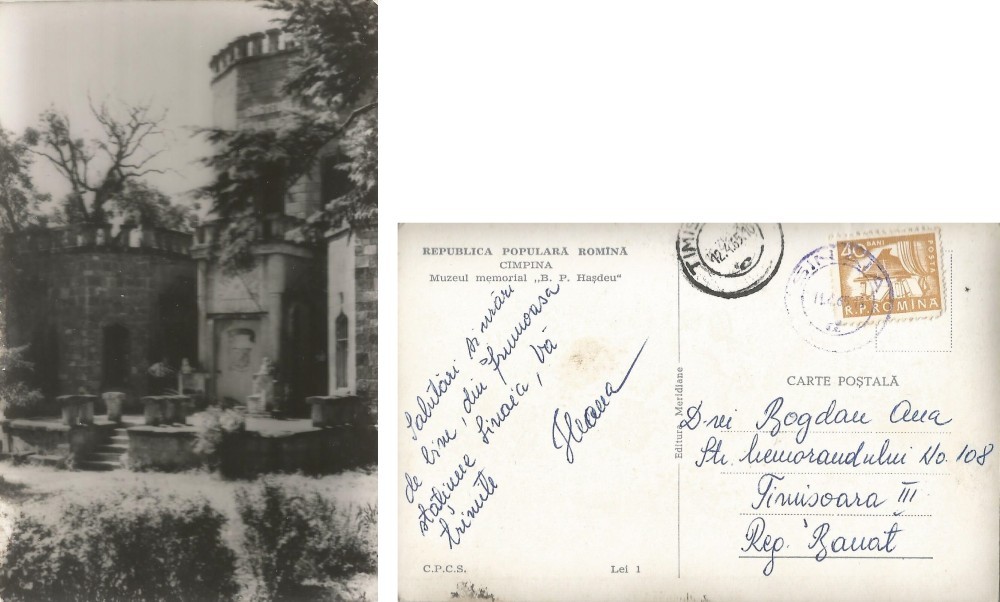 REPUBLICA POPULARĂ ROMÎNĂ
CÎMPINA
Muzeul memorial „B. P. Hașdeu"
Salutări si urări
de bine, din frumoasa
stațiune Sinaia, vă
trimite
Ileana
C.P.C.S.
Lei 1
Editura Meridiane
TIMIȘ
12.4.65.10
SINAIA
40 BANI
POSTA
R.P.ROMINA
CARTE POȘTALĂ
D-rei Bogdan Ana
Str. Memorandului No. 108
Timisoara III
Reg. Banat